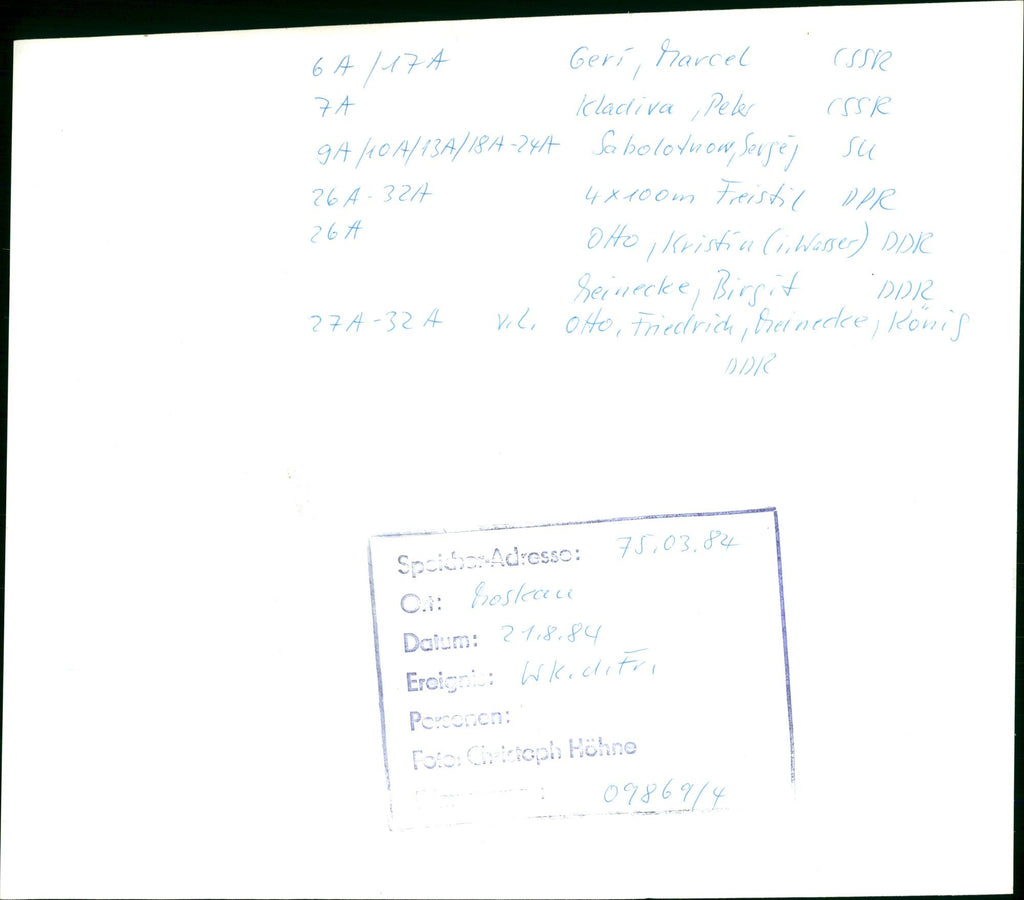 6A/17A Geri, Marcel CSSR
7A Kladiva, Peter CSSR
9A/10A/13A/18A-24A Sabolotnow, Sergej SU
26A-32A 4x100m Freistil DDR
26A Otto, Kristin (i. Wasser) DDR
Meinecke, Birgit DDR
27A-32A v.l. Otto, Friedrich, Meinecke, König
DDR
Speicher-Adresse: 75.03.84
Ort: Moskau
Datum: 21.8.84
Ereignis: Wk.d.Fr.
Personen:
Foto: Christoph Höhne
09869/4